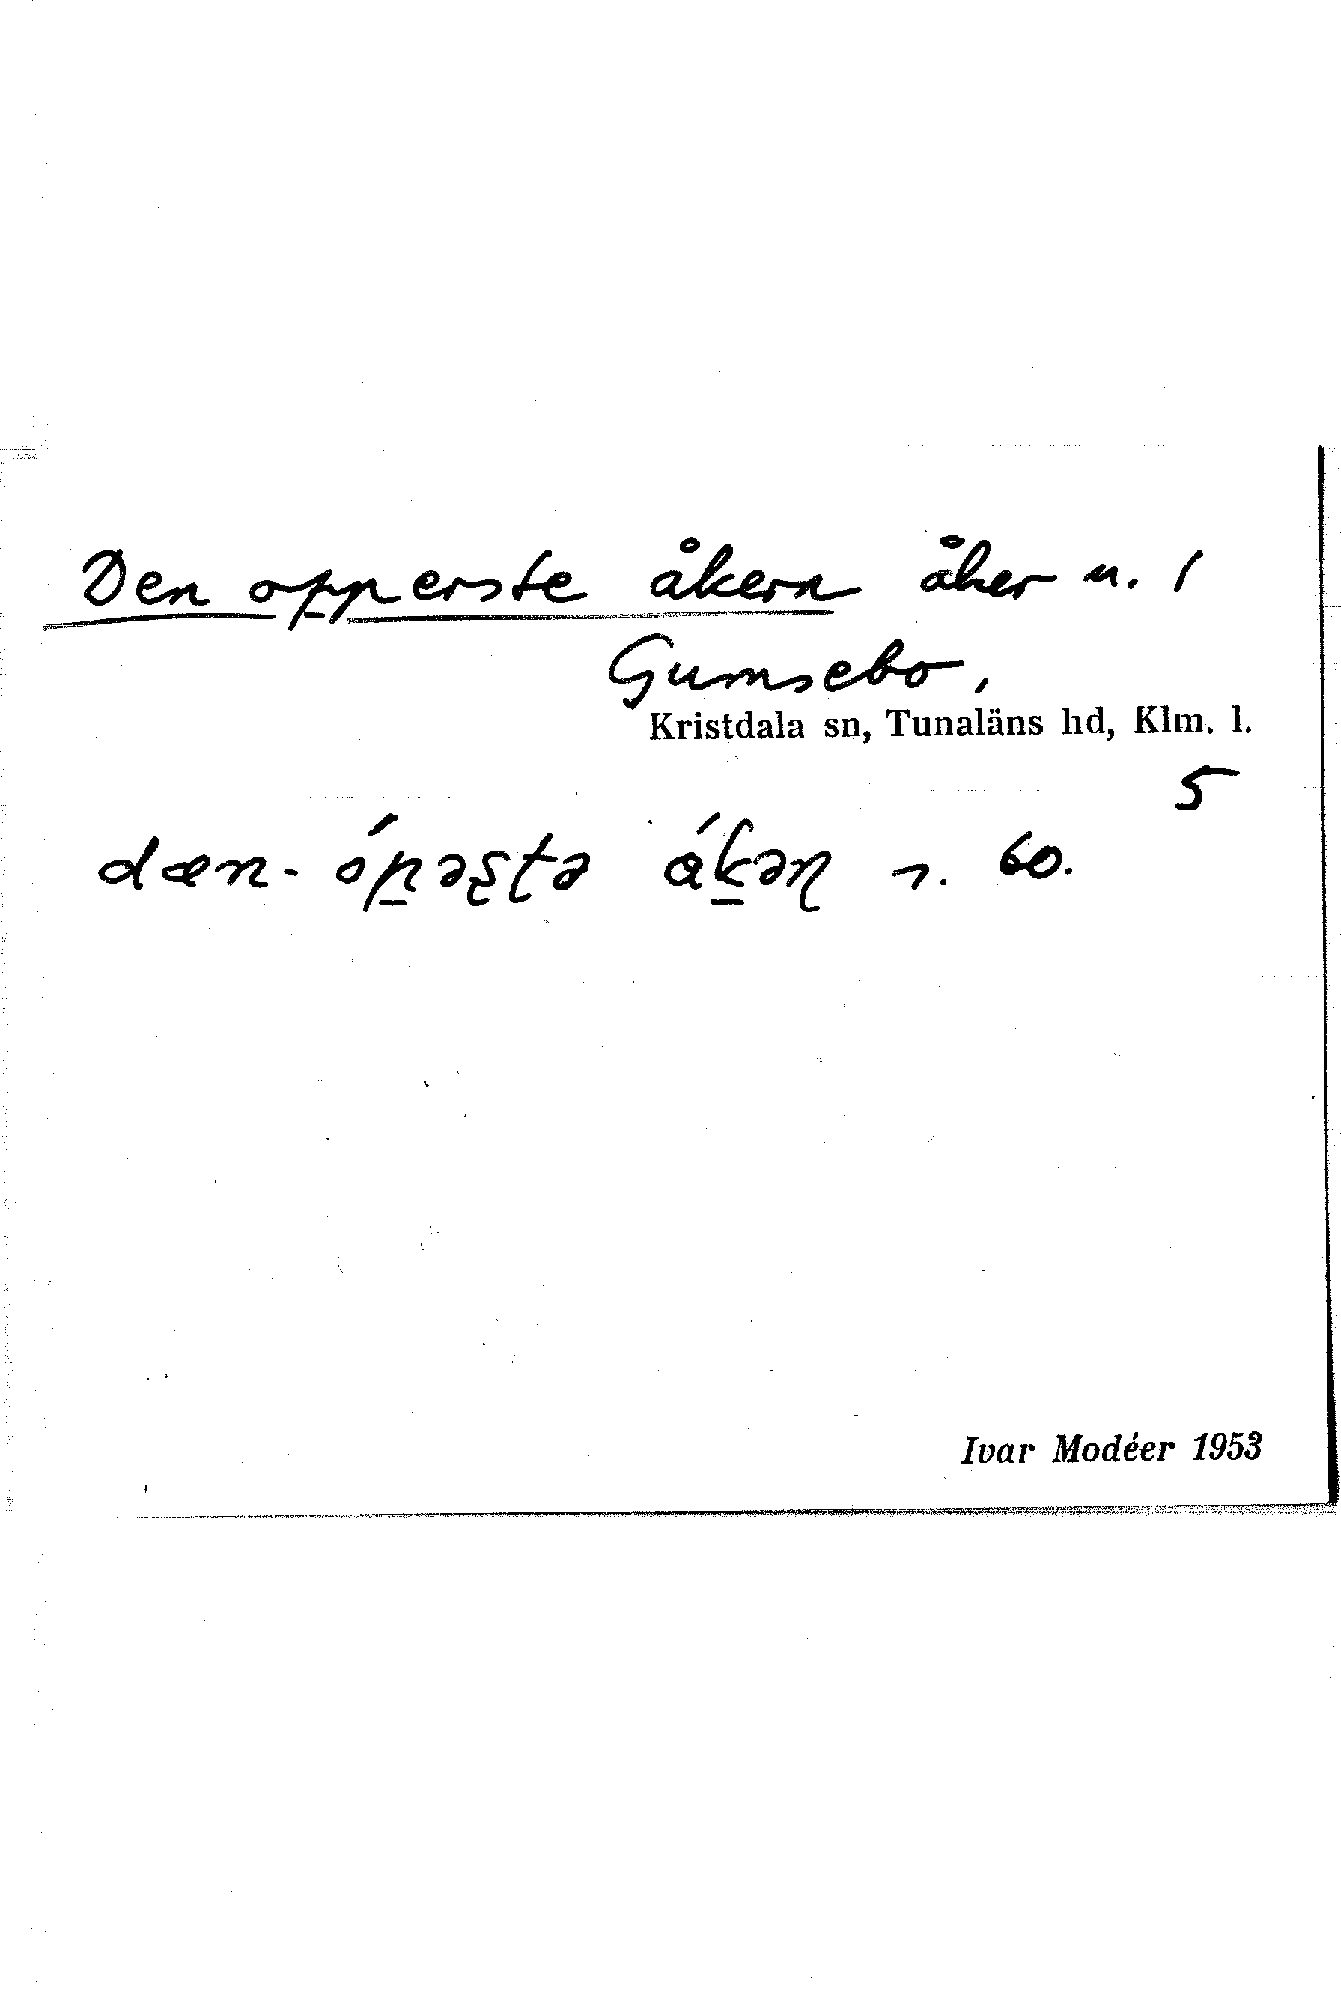 Den opperste åkern åker u. 1
Gumsebo,
Kristdala sn, Tunaläns hd, Klm. l.
5
dæn-óp̠əʂʈə ák̠əɳ 60.
Ivar Modéer 1953